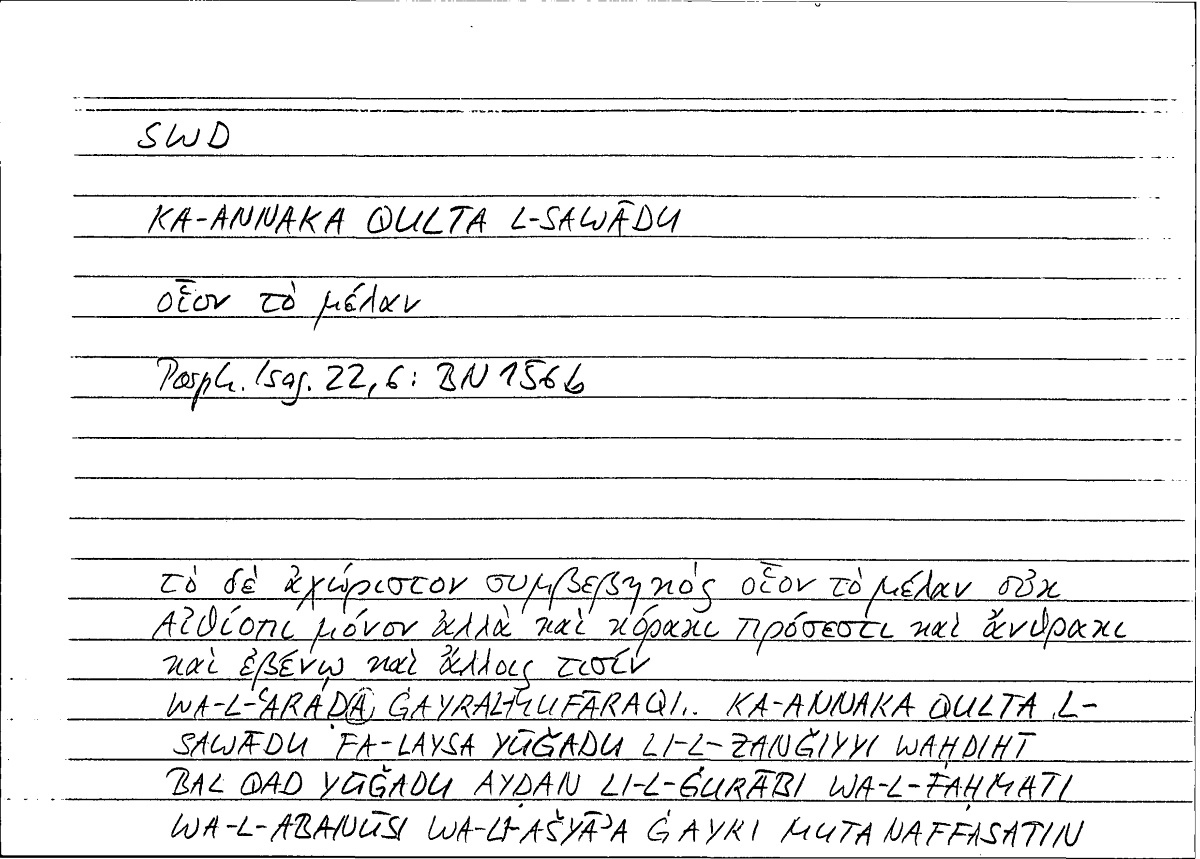 SWD
KA-ANNAKA QULTA L-SAWĀDU
οἷον τὸ μέλαν
Porph. Isag. 22,6: BN 156b
τὸ δὲ ἀχώριστον συμβεβηκός οἷον τὸ μέλαν οὐκ
Αἰθίοπι μόνον ἀλλὰ καὶ κόρακι πρόσεστι καὶ ἄνθρακι
καὶ ἐβένῳ καὶ ἄλλοις τισίν
WA-L-ʿARAḌA ĠAYRAL-MUFĀRAQI.. KA-ANNAKA QULTA L-
SAWĀDU FA-LAYSA YŪǦADU LI-L-ZANǦIYYI WAḤDIHĪ
BAL QAD YŪǦADU AYḌAN LI-L-ĠURĀBI WA-L-FAḤMATI
WA-L-ABANŪSI WA-LI-AŠYĀʾA ĠAYRI MUTANAFFASATIN